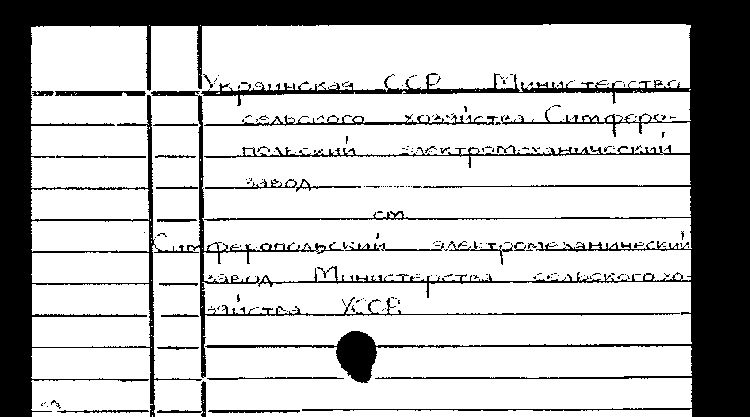 Украинская ССР. Министерство
сельского хозяйства. Симферо-
польский электромеханический
завод.
см.
Симферопольский электромеханический
завод Министерства сельского хо-
зяйства УССР.